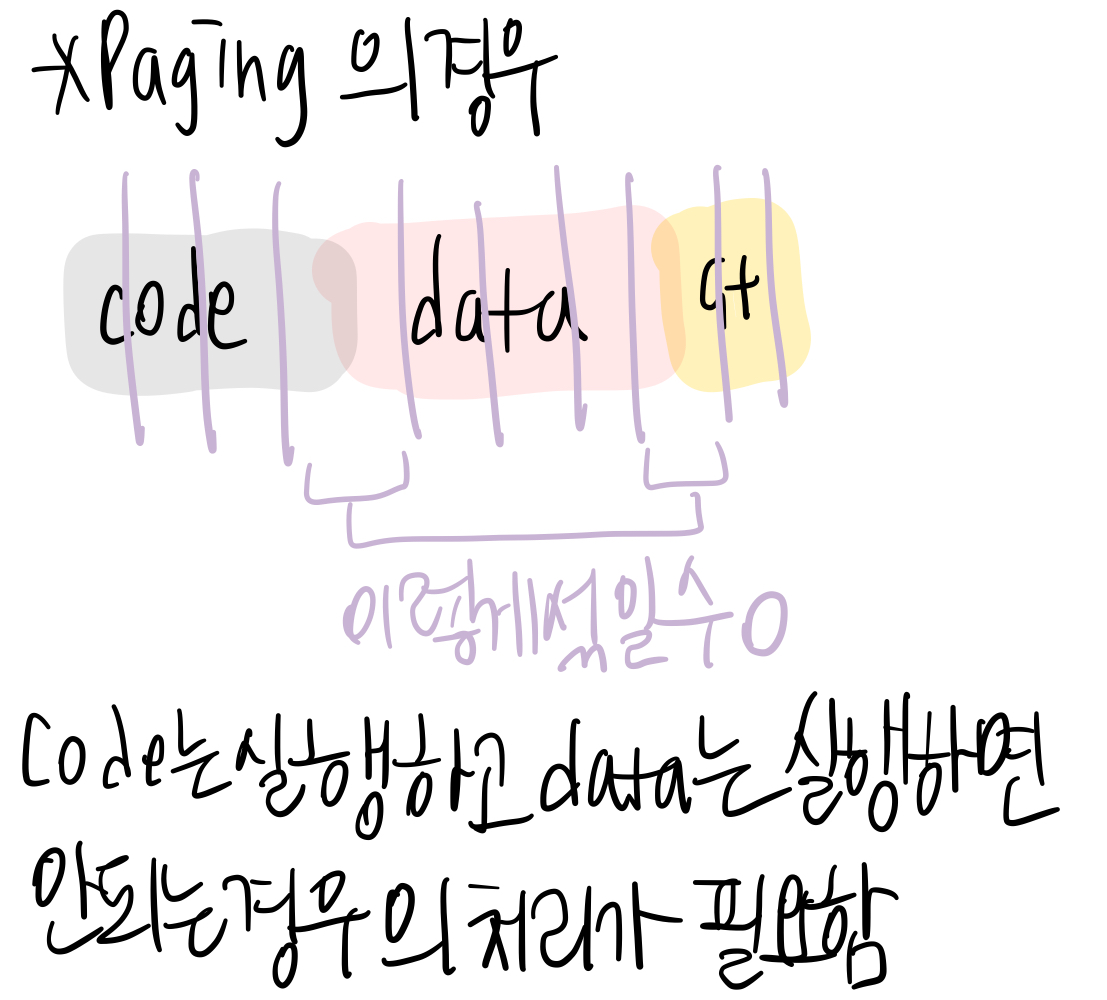 *Paging 의경우
code data st
이렇게섞일수O
code는실행하고 data는실행하면
안되는경우의처리가 필요함